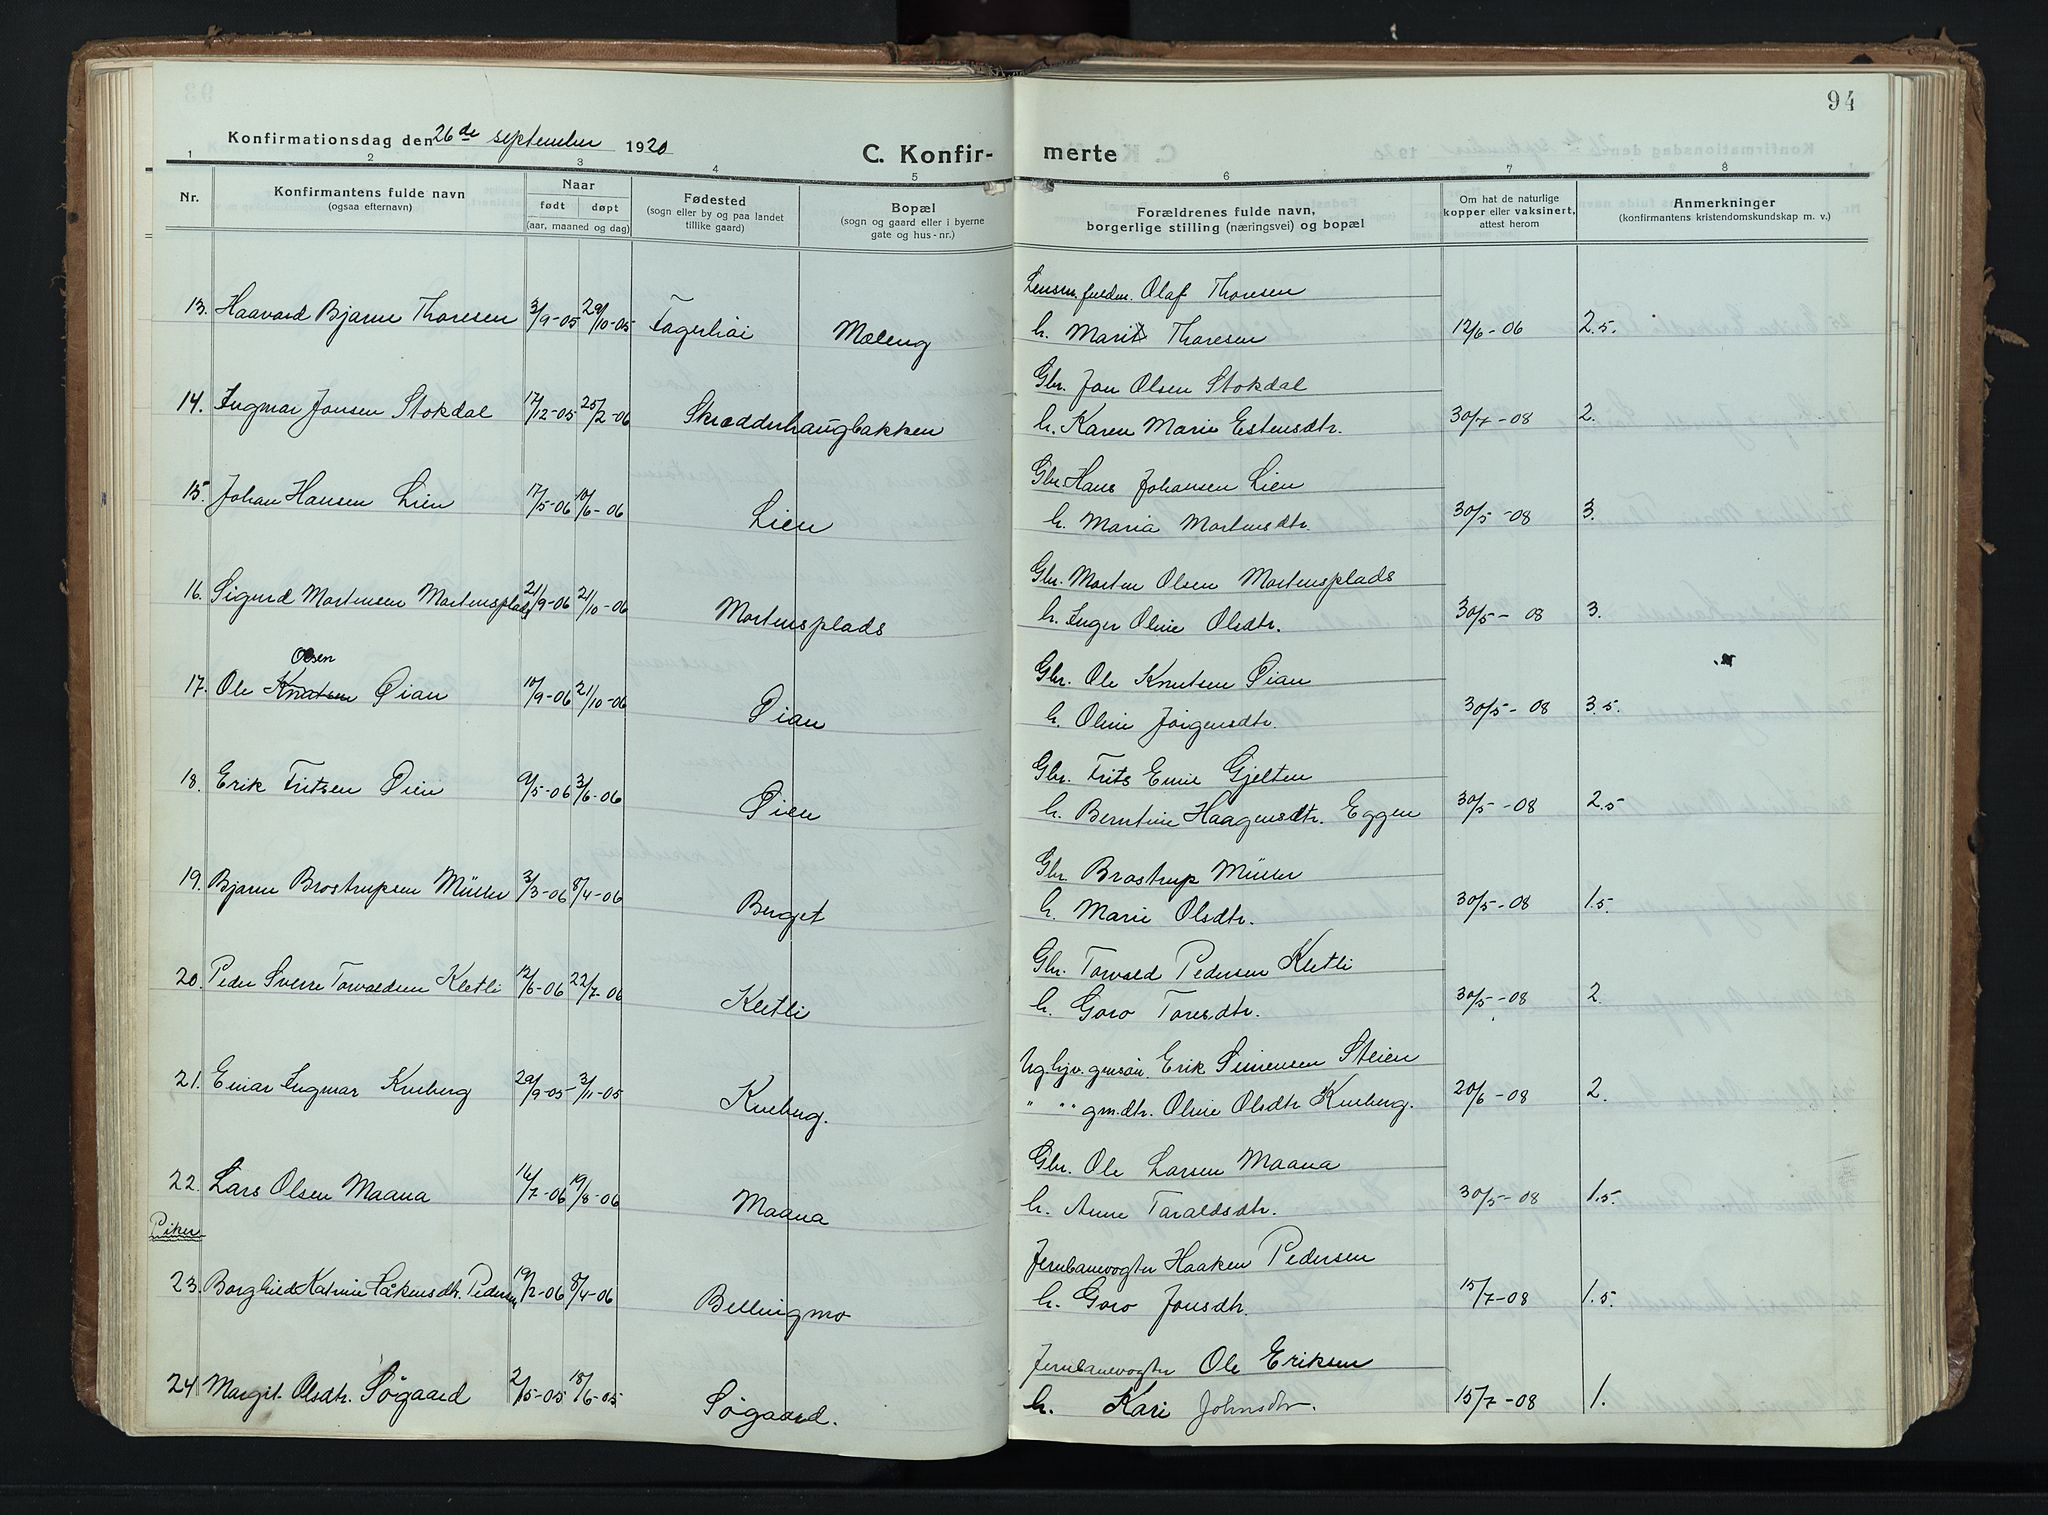 94
Konfirmationsdag den 26de september 1920
C. Konfir- merte
1 2 3 4 5 6 7 8
Nr. Konfirmantens fulde navn (ogsaa efternavn) Naar født døpt (aar, maaned og dag) Fødested (sogn eller by og paa landet tillike gaard) Bopæl (sogn og gaard eller i byerne gate og hus-nr.) Forældrenes fulde navn, borgerlige stilling (næringsvei) og bopæl Om hat de naturlige kopper eller vaksinert, attest herom Anmerkninger (konfirmantens kristendomskundskap m. v.)
Lensm. fuldm. Olaf Thoresen
13. Haavard Bjarne Thoresen 3/9-05 29/10-05 Fagerhøi Mæleng h. Marit Thoresen 12/6-06 2.5
Gbr. Jon Olsen Stokdal
14. Ingmar Jonsen Stokdal 17/12-05 25/2-06 Skrædderhaugbakken h. Karen Marie Estensdtr. 30/7-08 2.
Gbr. Hans Johansen Lien
15. Johan Hansen Lien 17/5-06 10/6-06 Lien h. Maria Mortensdtr. 30/5-08 3.
Gbr. Morten Olsen Mortensplads
16. Sigurd Mortensen Mortensplads 21/9-06 21/10-06 Mortensplads h. Inger Oline Olsdtr. 30/5-08 3.
Olsen
Gbr. Ole Knutsen Øian
17. Ole Knutsen Øian 10/9-06 21/10-06 Øian h. Oline Jörgensdtr. 30/5-08 3.5.
Gbr. Frits Emil Gjelten
18. Erik Fritsen Øien 9/5-06 3/6-06 Øien h. Berntine Haagensdtr. Eggen 30/5-08 2.5
Gbr. Brostrup Müller
19. Bjarne Brostrupsen Müller 3/3-06 8/4-06 Berget h. Marie Olsdtr. 30/5-08 1.5.
Gbr. Torvald Pedersen Kletli
20. Peder Sverre Torvaldsen Kletli 12/6-06 22/7-06 Kletli h. Goro Toresdtr. 30/5-08 2.
Ug. hjv. gmsøn. Erik Simensen Steien
21. Einar Ingmar Kveberg 29/9-05 3/11-05 Kveberg. " " gm.dtr. Oline Olsdtr Kveberg. 20/6-08 2.
Gbr. Ole Larsen Maana
22. Lars Olsen Maana 16/7-06 19/8-06 Maana h. Anne Taraldsdtr. 30/5-08 1.5.
Piker
Jernbanevogter Haaken Pedersen
23. Borghild Katrine Håkensdtr. Pedersen 19/2-06 8/4-06 Bellingmo h. Goro Jonsdtr. 15/7-08 1.5.
Jernbanevogter Ole Eriksen
24 Margit Olsdtr. Søgaard 2/5-05 18/6-05 Søgaard. h. Kari Johnsdtr. 15/7-08 1.